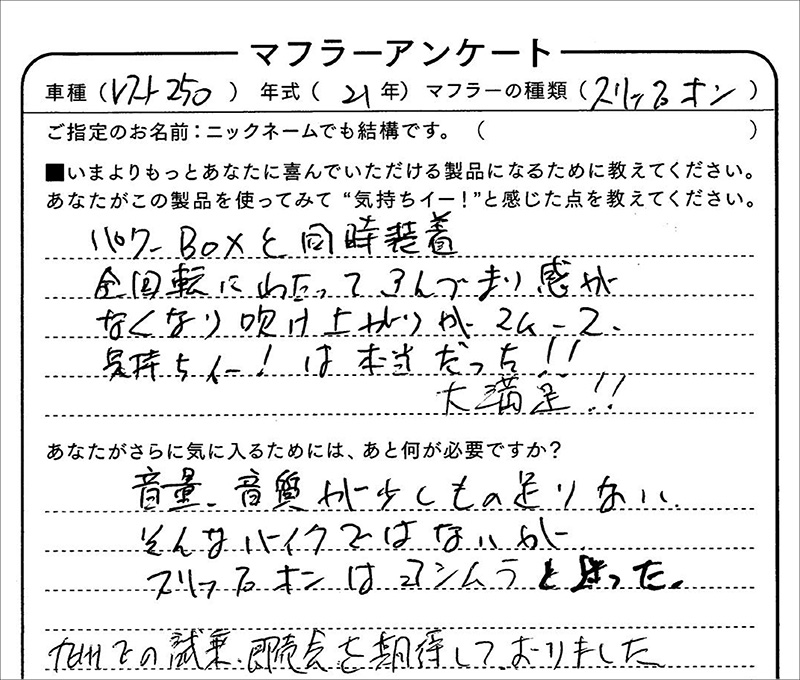 マフラーアンケート
車種（レブル250） 年式（21年） マフラーの種類（スリップオン）
ご指定のお名前：ニックネームでも結構です。（ ）
■いまよりもっとあなたに喜んでいただける製品になるために教えてください。
あなたがこの製品を使ってみて“気持ちイー！”と感じた点を教えてください。
パワーBoxと同時装着
全回転にわたってフン づまり感が
なくなり吹け上がりがスムース、
気持ちイー！は本当だった!!
大満足!!
あなたがさらに気に入るためには、あと何が必要ですか？
音量、音質が少しもの足りない
そんなバイクではないが
スリップオンはヨシムラと迷った。
九州での試乗、即売会を期待しております